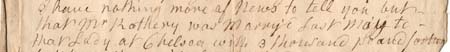 I have nothing more of News to tell you but
that Mr Rothery was Marry'd Last May to
that Lady at Chelsea with 3 thousand pound fortun